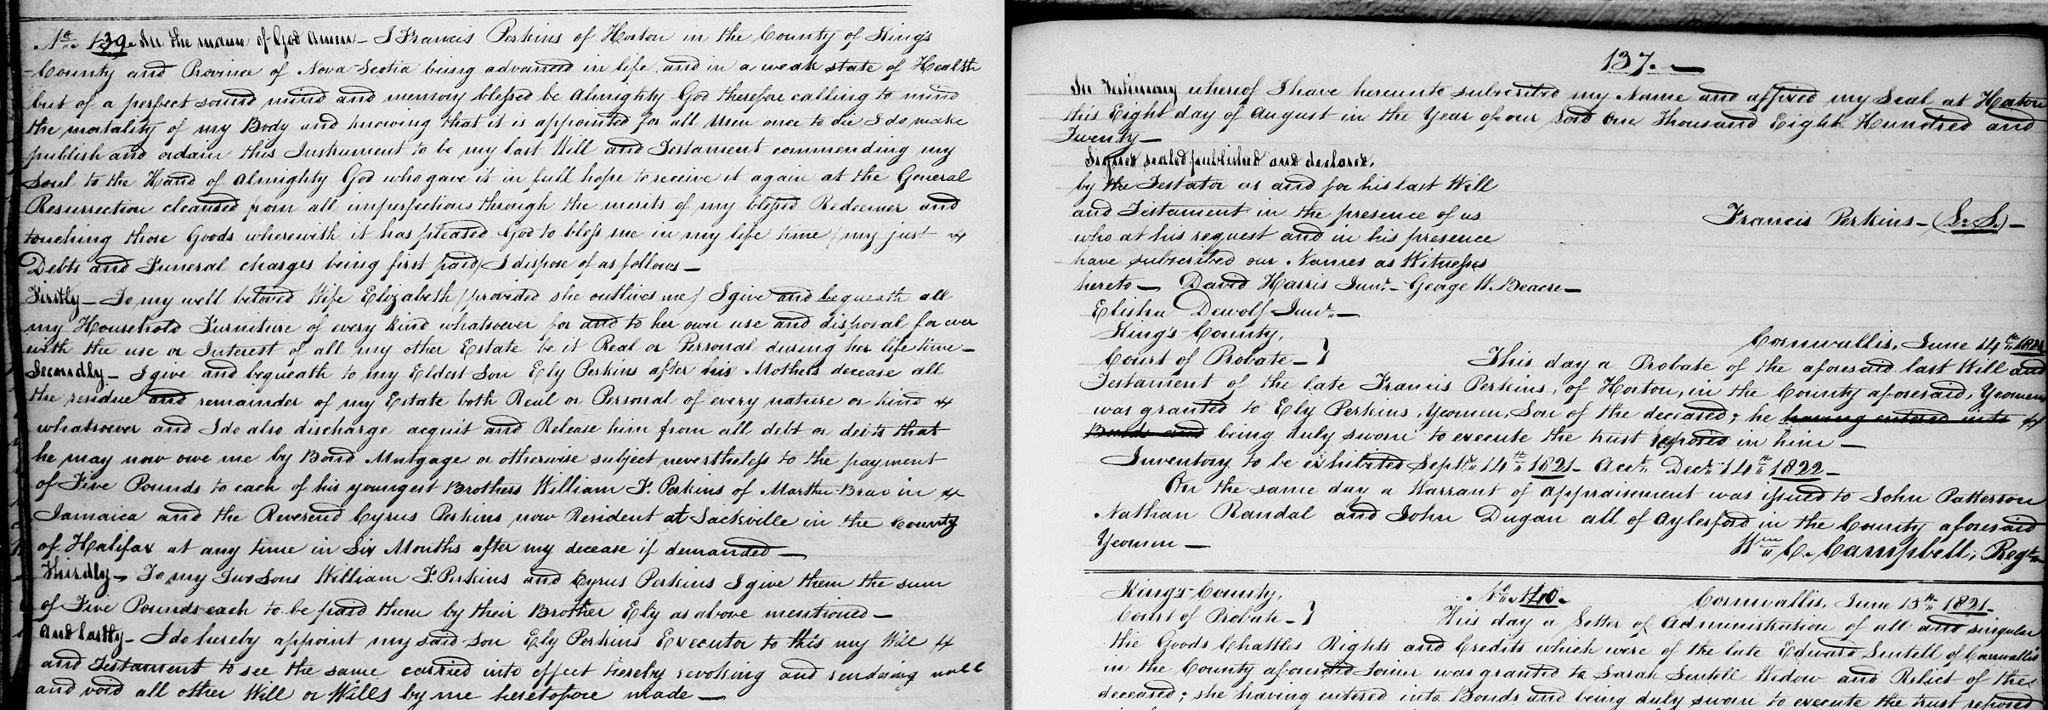 No. 139. In the name of God Amen - I Francis Perkins of Horton in the County of King's
County and Province of Nova Scotia being advanced in life and in a weak state of Health
but of a perfect sound mind and memory blessed be Almighty God therefore calling to mind
the mortality of my Body and knowing that it is appointed for all Men once to die I do make
publish and ordain this Instrument to be my last Will and Testament commending my
Soul to the Hand of Almighty God who gave it in full hope to receive it again at the General
Resurrection cleansed from all imperfections through the merits of my blessed Redeemer and
touching those Goods wherewith it has pleased God to bless me in my life time (my just
Debts and Funeral charges being first paid) I dispose of as follows -
Firstly - To my well beloved Wife Elizabeth (provided she outlives me) I give and bequeath all
my Household Furniture of every kind whatsoever for and to her own use and disposal for ever
with the use or Interest of all my other Estate be it Real or Personal during her life time -
Secondly - I give and bequeath to my Eldest Son Ely Perkins after his Mothers decease all
the residue and remainder of my Estate both Real or Personal of every nature or kind
whatsoever and I do also discharge acquit and Release him from all debt or debts that
he may now owe me by Bond Mortgage or otherwise subject nevertheless to the payment
of Five Pounds to each of his youngest Brothers William F. Perkins of Martha Brae in
Jamaica and the Reverend Cyrus Perkins now Resident at Sackville in the County
of Halifax at any time in Six Months after my decease if demanded -
Thirdly - To my Two Sons William F. Perkins and Cyrus Perkins I give them the sum
of Five Pounds each to be paid them by their Brother Ely as above mentioned -
And lastly - I do hereby appoint my said Son Ely Perkins Executor to this my Will
and Testament to see the same carried into effect hereby revoking and rendering null
and void all other Will or Wills by me heretofore made -
137. -
In Testimony whereof I have hereunto subscribed my Name and affixed my Seal at Horton
this Eight day of August in the Year of our Lord One Thousand Eight Hundred and
Twenty -
Signed sealed published and declared,
by the Testator as and for his last Will
and Testament in the presence of us
Francis Perkins - (L.S.) -
who at his request and in his presence
have subscribed our Names as Witnesses
hereto - David Harris Junr. - George W. -
Elisha Dewolf Junr. -
King's County,
Cornwallis, June 14th 1821
Court of Probate - } This day a Probate of the aforesaid last Will and
Testament of the late Francis Perkins, of Horton, in the County aforesaid, Yeoman
was granted to Ely Perkins, Yeoman, Son of the deceased; he having entered into
Bonds and being duly sworn to execute the trust reposed in him -
Inventory to be exhibited Septr. 14th 1821 - Acct. Decr. 14th 1822 -
On the same day a Warrant of Appraisement was issued to John Patterson
Nathan Randal and John Dugan all of Aylesford in the County aforesaid
Yeomen -
Wm. C. Campbell, Regr.
King's County, No. 140. Cornwallis, June 15th 1821 -
Court of Probate - } This day a Letter of Administration of all and singular
the Goods Chattles Rights and Credits which were of the late Edward Sentell of Cornwallis
in the County aforesaid Joiner was granted to Sarah Sentell Widow and Relict of the
deceased; she having entered into Bonds and being duly sworn to execute the trust reposed